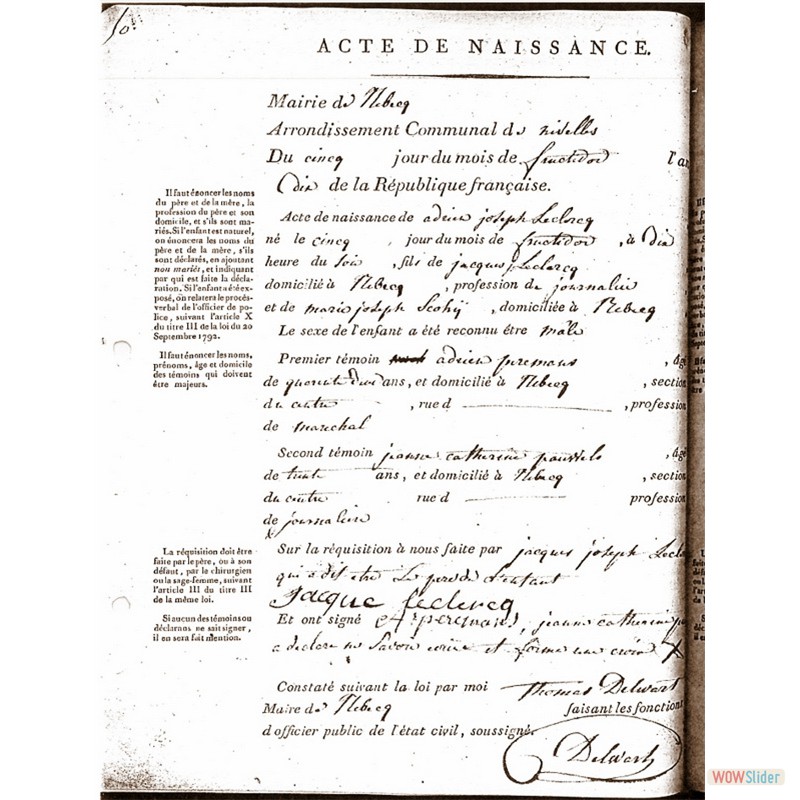 ACTE DE NAISSANCE.
Mairie de Rebecq
Arrondissement Communal de nivelles
Du cincq jour du mois de fructidor l'an
dix de la République française.
Il faut énoncer les noms
du père et de la mère, la
profession du père et son
domicile, et s'ils sont ma-
riés. Si l'enfant est naturel,
on énoncera les noms du
père et de la mère, s'ils
sont déclarés, en ajoutant
non mariés, et indiquant
par qui est faite la décla-
ration. Si l'enfant a été ex-
posé, on relatera le procès-
verbal de l'officier de po-
lice, suivant l'article X
du titre III de la loi du 20
Septembre 1792.
Acte de naissance de adrien joseph Leclercq
né le cincq, jour du mois de fructidor, à dix
heure du soir, fils de jacques Leclercq
domicilié à Rebecq, profession de journalier
et de marie joseph, domiciliée à Rebecq
Le sexe de l'enfant a été reconnu être mâle
Il faut énoncer les noms,
prénoms, âge et domicile
des témoins qui doivent
être majeurs.
Premier témoin adrien peremans, âgé
de quarente deux ans, et domicilié à Rebecq, section
du centre, rue d, profession
de marechal
Second témoin jeanne catherine, âgé
de trente ans, et domicilié à Rebecq, section
du centre rue d profession
de journaliere
La réquisition doit être
faite par le père, ou à son
défaut, par le chirurgien
ou la sage-femme, suivant
l'article III du titre III
de la même loi.
Sur la réquisition à nous faite par jacques joseph Lecle
qui a dit etre Le pere de L'enfant
jacque Leclercq
Si aucun des témoins ou
déclarans ne sait signer,
il en sera fait mention.
Et ont signé peremans, jeanne catherine
a declare ne savoir ecrire et forme une croix X
Constaté suivant la loi par moi Thomas Delwart
Maire de Rebecq faisant les fonctions
d'officier public de l'état civil, soussigné.
Delwart
WOWSlider